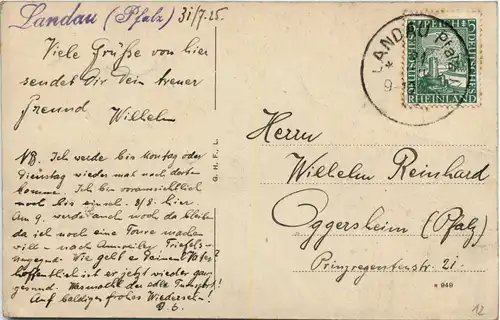 Landau (Pfalz) 31/7.25.
Viele Grüße von hier
sendet Dir Dein treuer
Freund Wilhelm
NB. Ich werde bis Montag oder
Dienstag wieder mal nach dorten
komme. Ich bin voraussichtlich
noch bis einschl. 8/8. hier.
Am 9. werde auch noch da bleiben
da ich noch eine Tour machen
will - nach Annweiler Trifels-
gegend. Wie geht es Deinem Vater?
Hoffentlich ist er jetzt wieder ganz
gesund. Was macht der edle
Auf baldiges frohes Wiedersehn!
D. O.
G. H. F. L.
LANDAU Pfalz
DEUTSCHES REICH
RHEINLAND
5
Herrn
Wilhelm Reinhard
Oggersheim (Pfalz)
Prinzregentenstr. 21.
* 949
12